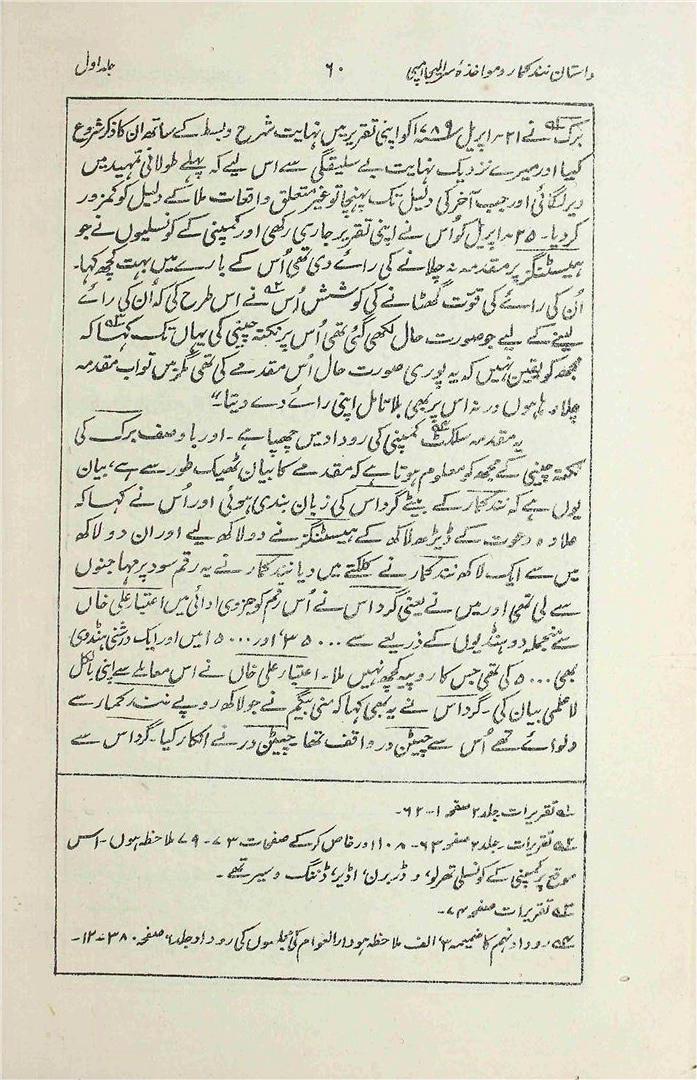 داستان نند کمار و مواخذهٔ سر الیجا امپی ۶۰ جلد اول
برک نے ۲۱ اپریل ۱۷۸۹ء کو اپنی تقریر میں نہایت شرح و بسط کے ساتھ ان کا ذکر شروع
کیا اور میرے نزدیک نہایت بے سلیقگی سے اس لیے کہ پہلے طولانی تمہید میں
دیر لگائی اور جب آخر کی دلیل تک پہنچا تو غیر متعلق واقعات ملا کے دلیل کو کمزور
کر دیا۔ ۲۵ اپریل کو اُس نے اپنی تقریر جاری رکھی اور کمپنی کے کونسلیوں نے جو
ہیسٹنگز پر مقدمہ نہ چلانے کی رائے دی تھی اُس کے بارے میں بہت کچھ کہا۔
اُن کی رائے کی قوت گھٹانے کی کوشش اُس ۹۲ نے اس طرح کی کہ اُن کی رائے
لینے کے لیے جو صورت حال لکھی گئی تھی اُس پر نکتہ چینی کی یہاں تک کہا ۹۳ کہ
مجھ کو یقین نہیں کہ یہ پوری صورت حال اُس مقدمے کی تھی مگر میں تو اب مقدمہ
چلا رہا ہوں ورنہ اس پر بھی بلا تامل اپنی رائے دے دیتا۔"
یہ مقدمہ سلکٹ ۹۴ کمپنی کی روداد میں چھپا ہے۔ اور باوصف برک کی
نکتہ چینی کے مجھ کو معلوم ہوتا ہے کہ مقدمے کا بیان ٹھیک طور سے ہے، بیان
یوں ہے کہ نند کمار کے بیٹے گرداس کی زبان بندی ہوئی اور اُس نے کہا کہ
علاوہ دعوت کے ڈیڑھ لاکھ کے ہیسٹنگز نے دو لاکھ لیے اور ان دو لاکھ
میں سے ایک لاکھ نند کمار نے کلکتے میں دیا نند کمار نے یہ رقم سود پر مہاجنوں
سے لی تھی اور میں نے یعنی گرداس نے اُس رقم کو جزوی ادائی میں اعتبار علی خاں
سے منجملہ دو ہنڈیوں کے ذریعے سے ۳۵۰۰۰ اور ۵۰۰۰۰ ایں اور ایک درشنی ہنڈوی
بھی ۵۰۰۰ کی تھی جس کا روپیہ کچھ نہیں ملا۔ اعتبار علی خاں نے اس معاملے سے اپنی بالکل
لا علمی بیان کی۔ گرداس نے یہ بھی کہا کہ منی بیگم نے جو لاکھ روپے نند کمار سے
دلوائے تھے اُس سے چیٹن در واقف تھا چیٹن در نے انکار کیا۔ گرداس سے
۹۱ تقریرات جلد ۲ صفحہ ۱-۶۲۔
۹۲ تقریرات۔ جلد ۲ صفحہ ۶۳-۱۰۸ اور خاص کر کے صفحات ۷۳-۷۹ ملاحظہ ہوں۔ اس
موقع پر کمپنی کے کونسلی تھرلو، وڈربرن، اڈیر، ڈننگ وسیر تھے۔
۹۳ تقریرات صفحہ ۷۴۔
۹۴ روداد نہم کا ضمیمہ ۳ الف ملاحظہ ہو دارالعوام کی کمیٹیوں کی روداد جلد ۶ صفحہ ۳۸۰-۱۲۔